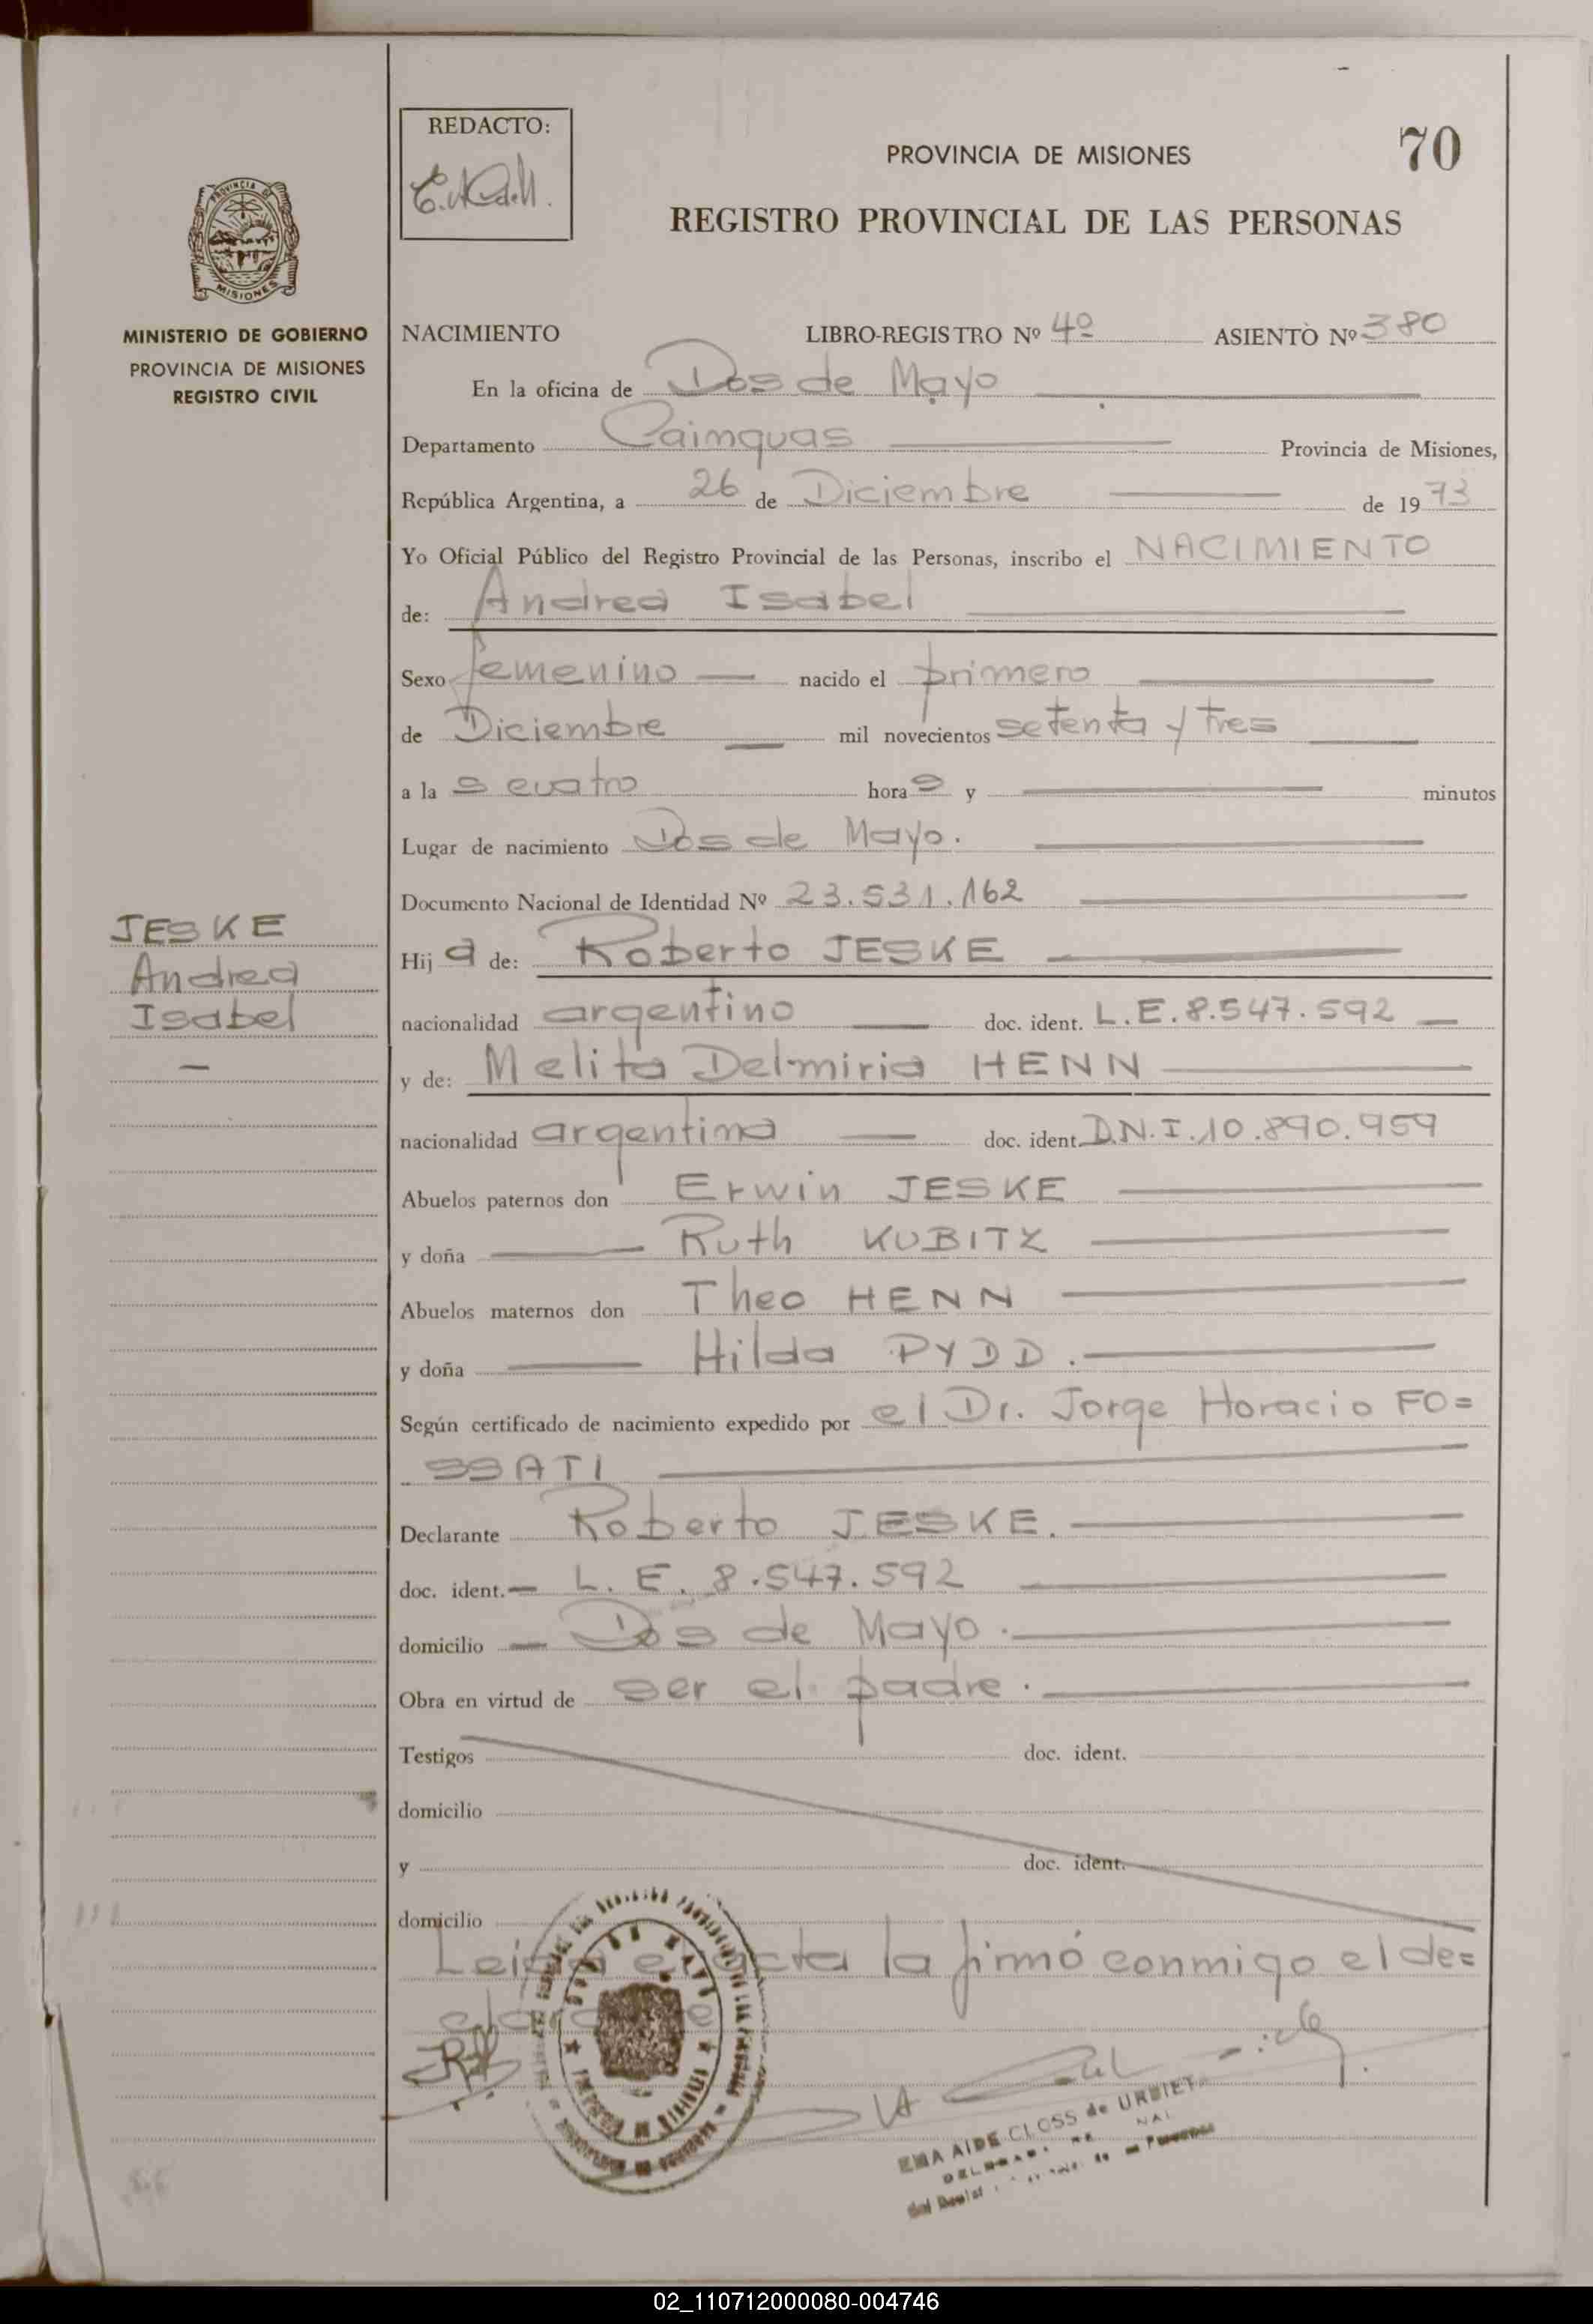 REDACTO:
PROVINCIA DE MISIONES
70
REGISTRO PROVINCIAL DE LAS PERSONAS
PROVINCIA DE
MISIONES
MINISTERIO DE GOBIERNO
PROVINCIA DE MISIONES
REGISTRO CIVIL
NACIMIENTO LIBRO-REGISTRO Nº 4º ASIENTO Nº 380
En la oficina de Dos de Mayo
Departamento Cainguas Provincia de Misiones,
República Argentina, a 26 de Diciembre de 1973
Yo Oficial Público del Registro Provincial de las Personas, inscribo el NACIMIENTO
de: Andrea Isabel
Sexo femenino nacido el primero
de Diciembre mil novecientos setenta y tres
a las cuatro horas y minutos
Lugar de nacimiento Dos de Mayo.
Documento Nacional de Identidad Nº 23.531.162
JESKE
Andrea
Isabel
Hija de: Roberto JESKE
nacionalidad argentino doc. ident. L.E. 8.547.592
y de: Melita Delmiria HENN
nacionalidad argentina doc. ident. D.N.I. 10.890.959
Abuelos paternos don Erwin JESKE
y doña Ruth KUBITZ
Abuelos maternos don Theo HENN
y doña Hilda PYDD.
Según certificado de nacimiento expedido por el Dr. Jorge Horacio FO=
SSATI
Declarante Roberto JESKE.
doc. ident. L.E. 8.547.592
domicilio Dos de Mayo.
Obra en virtud de ser el padre.
Testigos doc. ident.
domicilio
y doc. ident.
domicilio
Leida el acta la firmó conmigo el de=
clarante
EMA AIDE CLOSS de URBIETA
02_110712000080-004746